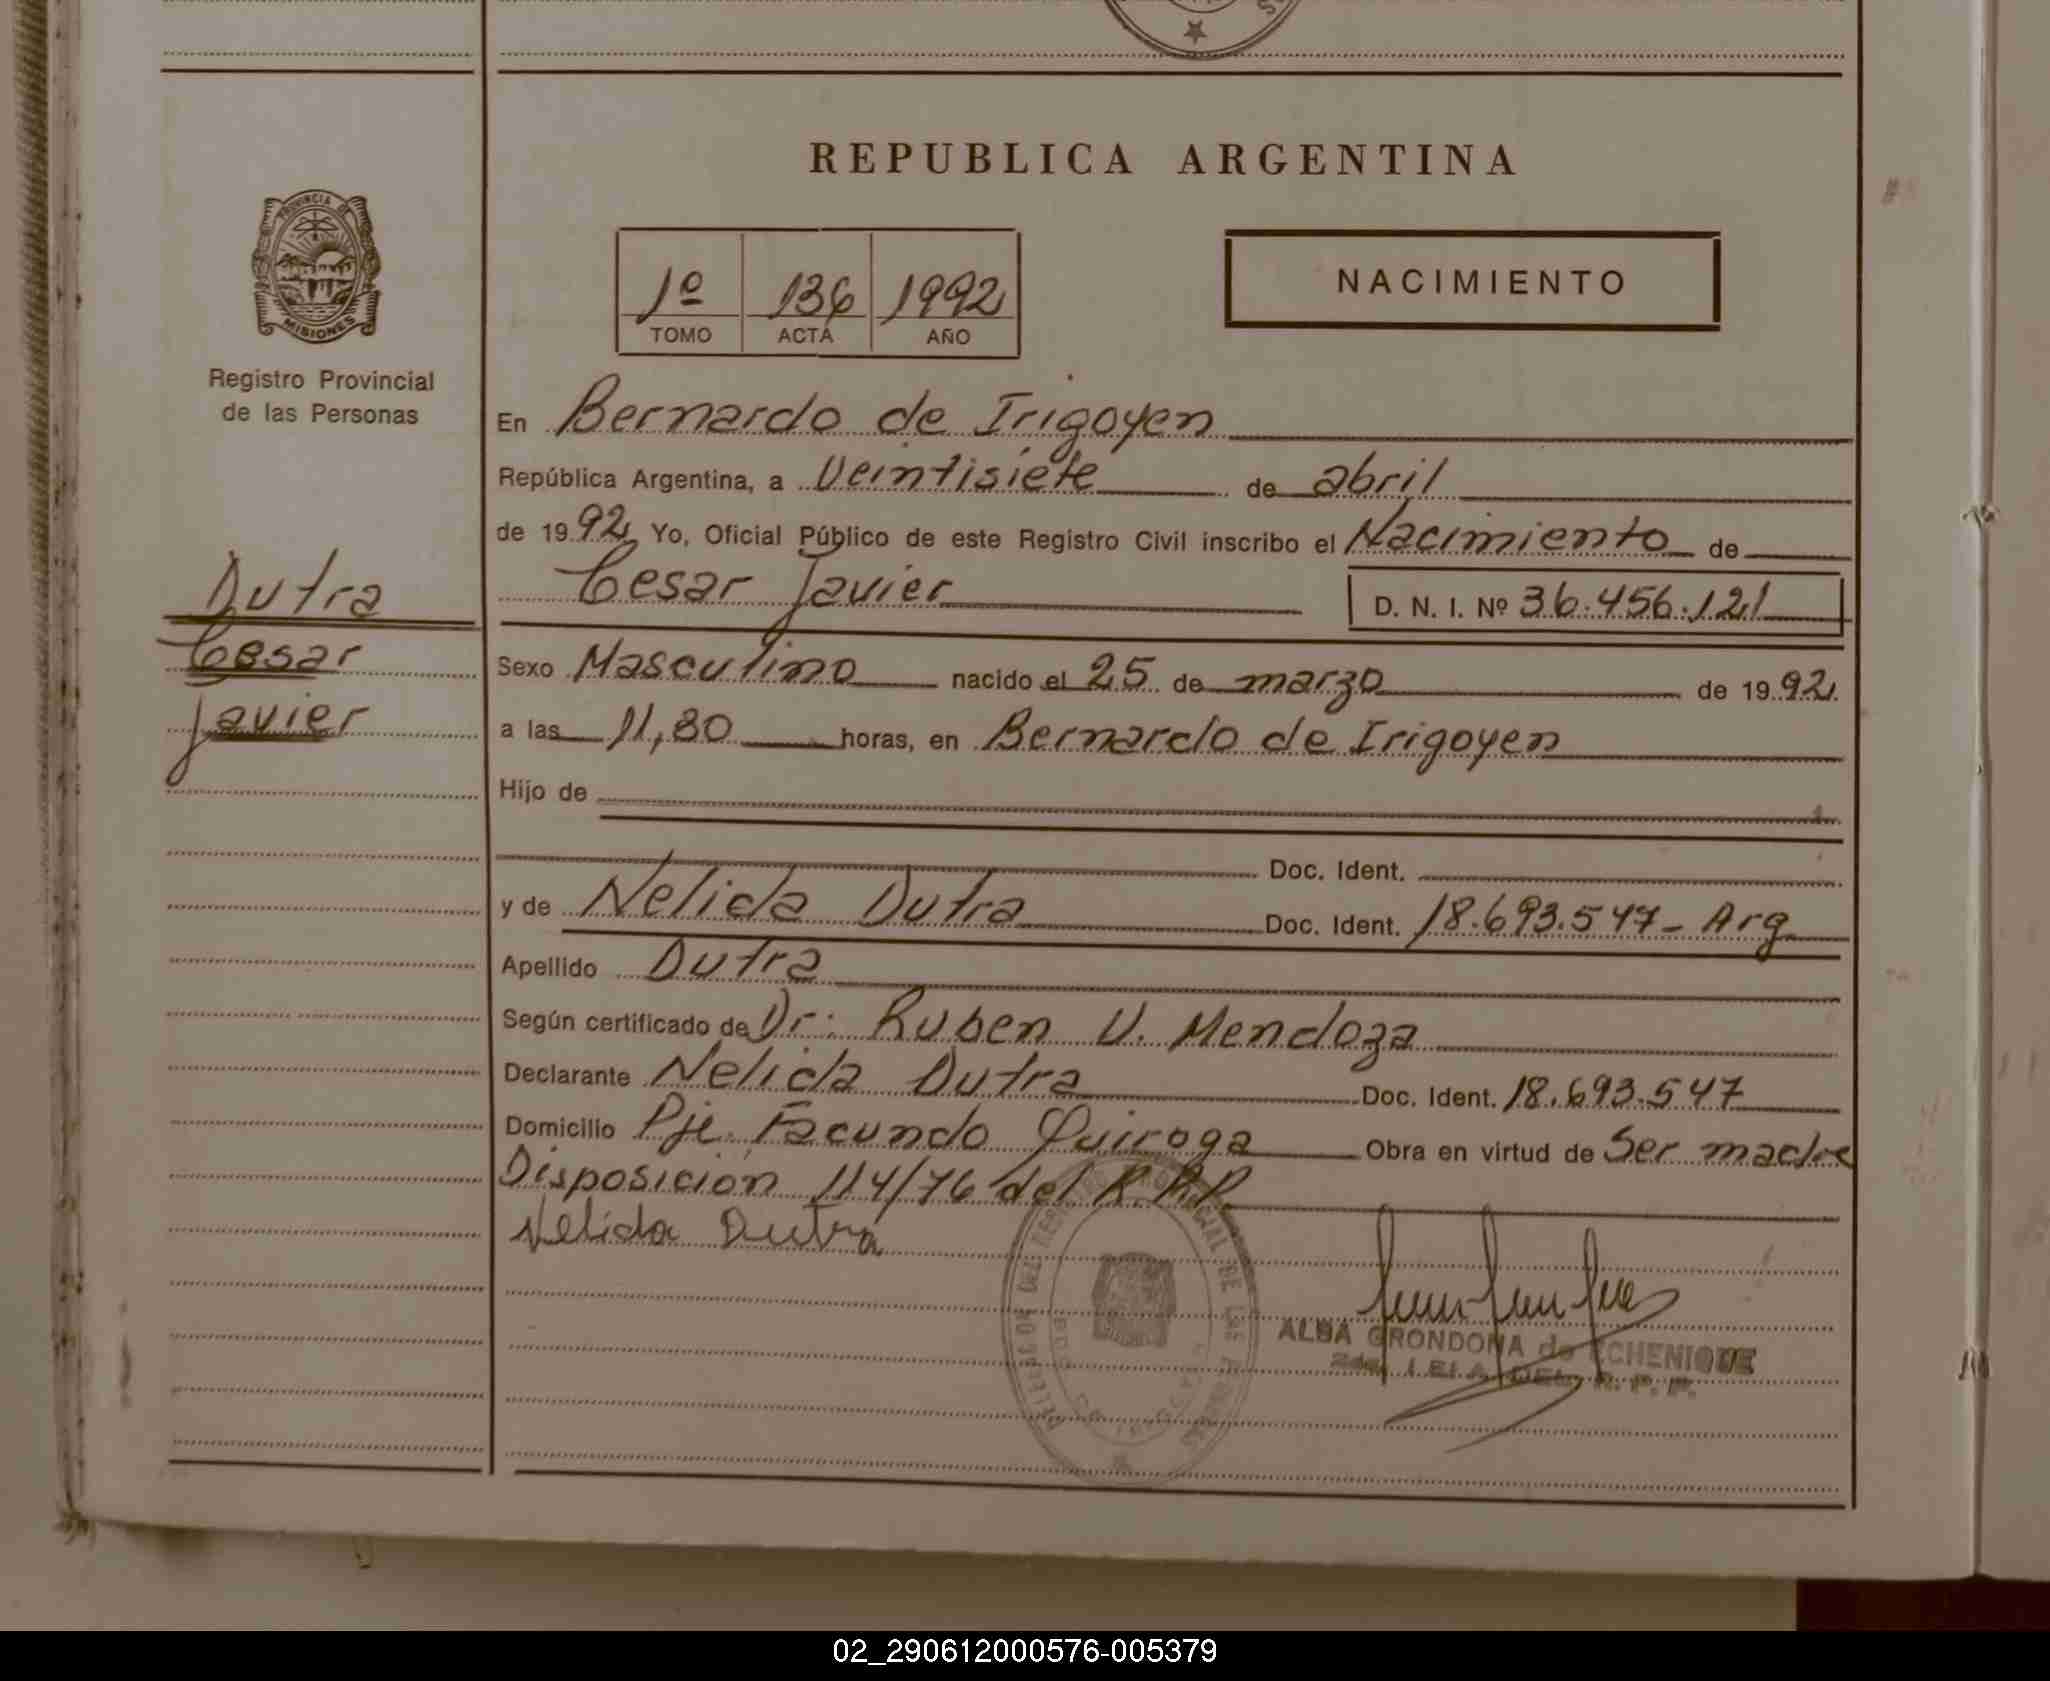 REPUBLICA ARGENTINA
PROVINCIA DE
MISIONES
Registro Provincial
de las Personas
1º 136 1992
TOMO ACTA AÑO
NACIMIENTO
Dutra
Cesar
Javier
En Bernardo de Irigoyen
República Argentina, a Veintisiete de abril
de 1992 Yo, Oficial Público de este Registro Civil inscribo el Nacimiento de
Cesar Javier D. N. I. Nº 36.456.121
Sexo Masculino nacido el 25 de marzo de 1992
a las 11,30 horas, en Bernardo de Irigoyen
Hijo de
Doc. Ident.
y de Nelida Dutra Doc. Ident. 18.693.547- Arg
Apellido Dutra
Según certificado de Dr: Ruben U. Mendoza
Declarante Nelida Dutra Doc. Ident. 18.693.547
Domicilio Pje. Facundo Quiroga Obra en virtud de Ser madre
Disposición 114/76 del R.P.P.
Nelida Dutra
ALBA GRONDONA de ECHENIQUE
DEL R. P. P.
02_290612000576-005379